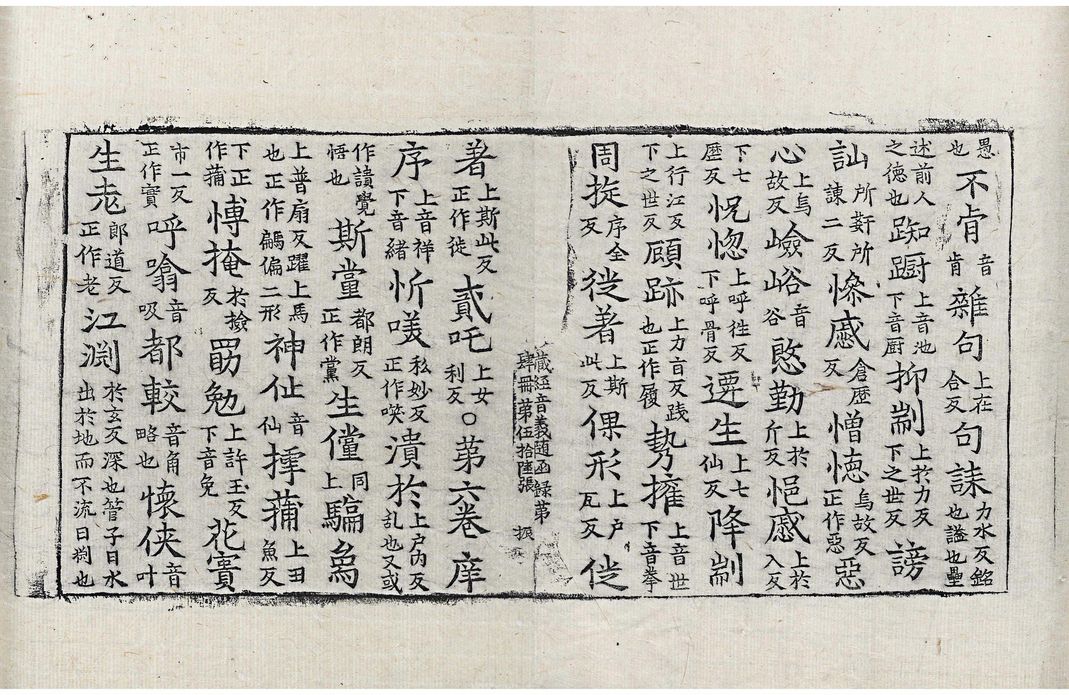 愚也不肎音肯雜句上在合反句誄力水反銘也謚也壘
述前人之德也踟蹰上音池下音厨抑制上於力反下之世反謗
訕所姧所諫二反慘慼倉歷反憎憄烏故反正作惡惡
心上烏故反嶮峪音谷慇勤上於斤反悒慼上於入反
下七歷反怳惚上呼往反下呼骨反遷生上七仙反降制
上行江反下之世反頋跡上力亘反践也正作履勢擁上音世下音拳
周挻序全反徙著上斯此反倮形上户瓦反徙
藏經音義隨函録第
肆冊第伍拾陸張 振
著上斯此反正作徙貳吒上女利反○第六卷庠
序上音祥下音緒忻㗛私妙反正作㗛潰於上户內反乱也又或
作讀覺悟也斯黨都朗反正作黨生儻同上騙馬
上普扇反躍上馬也正作䮠偏二形神仙音仙摴蒱上丑魚反
下正作蒱愽掩於撿反勗勉上許玉反下音免花賓
市一反正作實呼噏音吸都較音角略也懷俠音叶
生恅郎道反正作老江渊於玄反深也管子曰水出於地而不流曰渊也